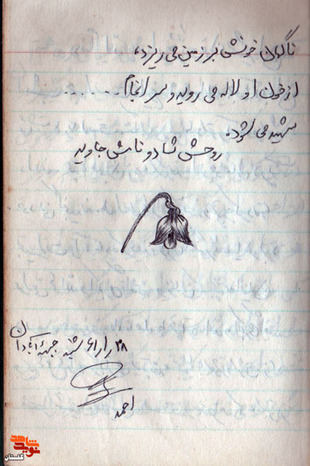 ناگهان خونش بر زمین می ریزد،
از خون او لاله می روید و سرانجام......
شهید می شود.
روحش شاد و نامش جاوید
جبهه آبادان
احمد
نوید شاهد